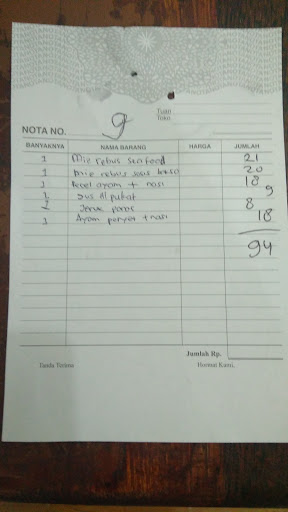 Tuan
Toko
NOTA NO. 9
BANYAKNYA NAMA BARANG HARGA JUMLAH
1 Mie rebus seafood 21
1 mie rebus sosis bakso 20
1 Pecel ayam + nasi 18
1 Jus Alpukat 9
2 Jeruk panas 8
1 Ayam penyet + nasi 18
94
Jumlah Rp.
Tanda Terima Hormat Kami,